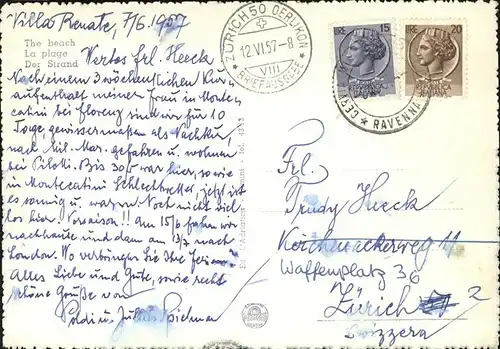 Villa Renate, 7/6.1957
The beach
La plage
Der Strand
Wertes Frl. Heeck
Nach einem 3 wöchentlichen Kur=
aufenthalt meiner Frau in Monte=
catini bei Florenz sind wir für 10
Tage, gewissermaßen als Nachkur,
nach Mil. Mar. gefahren u. wohnen
bei Pilotti. Bis 30/5 war hier, sowie
in Montecatini Schlechtwetter, jetzt ist
es sonnig u. warm. Noch nicht viel
los hier. Vorsaison!! Am 15/6 fahren wir
nachhause und dann am 13/7 nach
London. Wo verbringen Sie Ihre Ferien?
Alles Liebe und Gute, sowie recht
schöne Grüße von
Poldi u. Julius
ZÜRICH 50 OERLIKON
12.VI.57-8
VIII
BRIEFAUSGABE
LIRE 15
LIRE 20
CERVIA
RAVENNA
Frl.
Trudy Heeck
Kirchenackerweg 11
Waffenplatz 36
Zürich 2
Svizzera